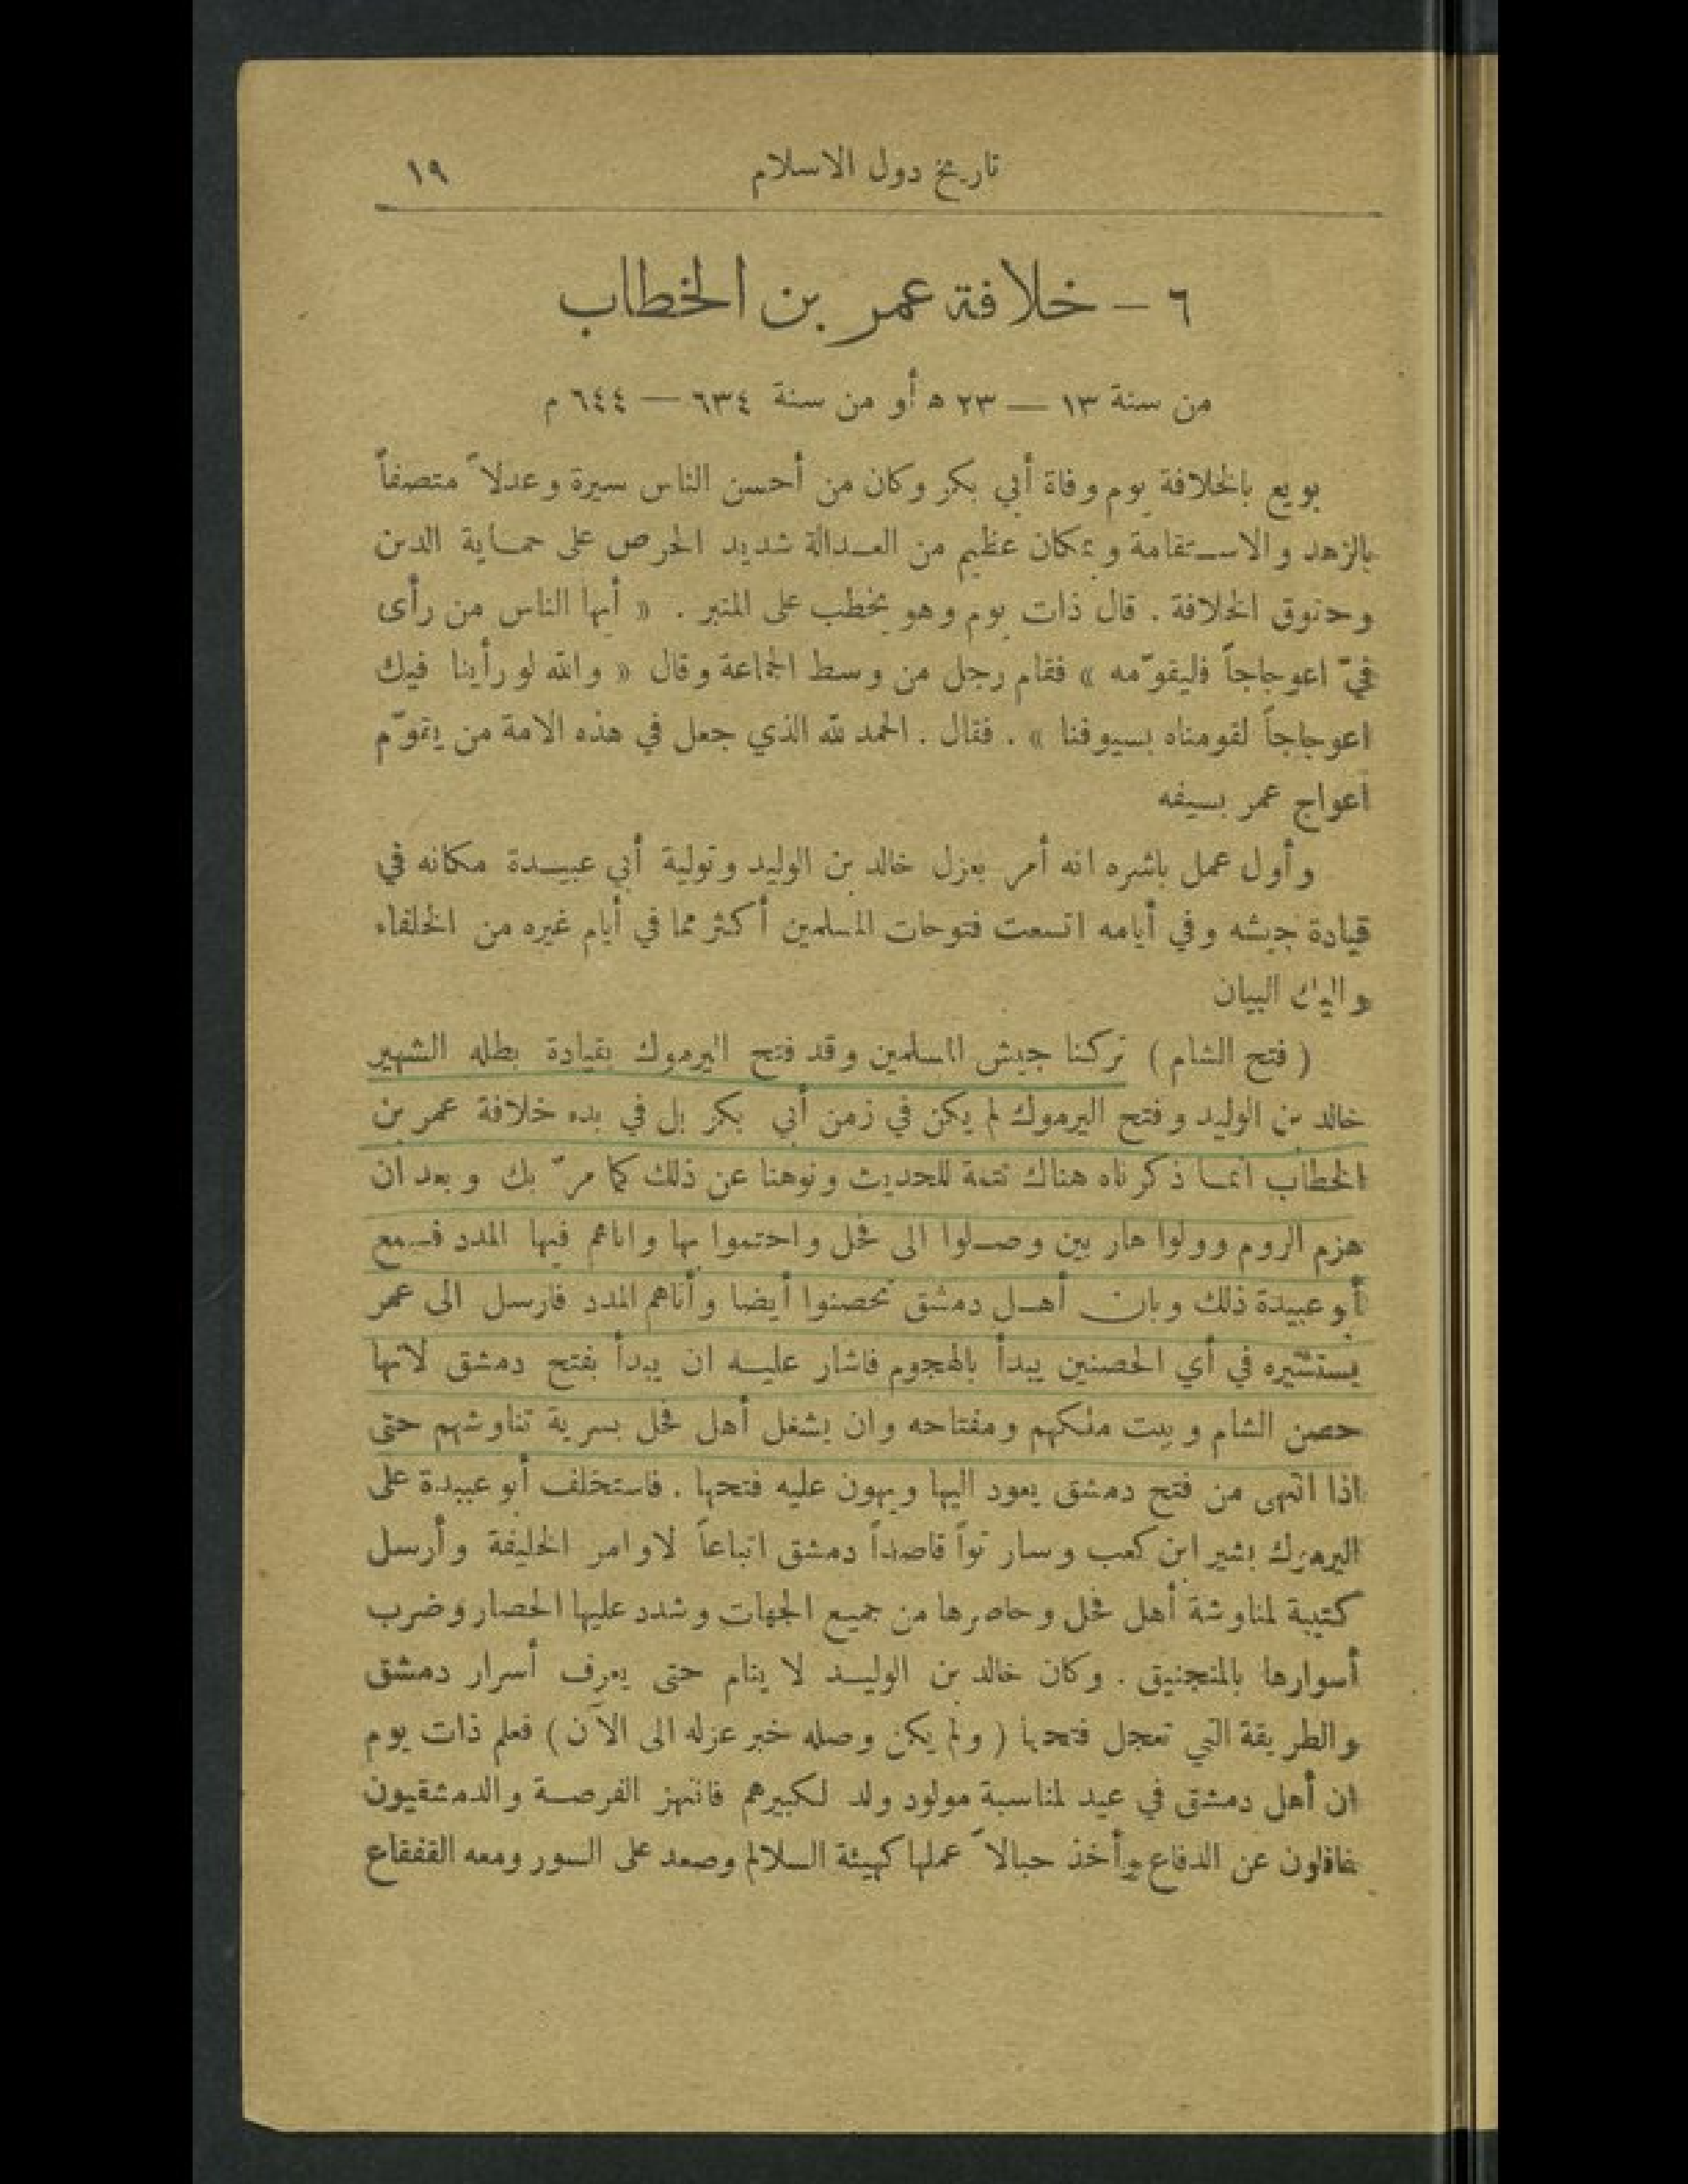 تاريخ دول الاسلام ١٩
٦ – خلافة عمر بن الخطاب
من سنة ١٣ — ٢٣ ه أو من سنة ٦٣٤ — ٦٤٤ م
بويع بالخلافة يوم وفاة أبي بكر وكان من أحسن الناس سيرة وعدلاً متصفاً
بالزهد والاستقامة وبمكان عظيم من العدالة شديد الحرص على حماية الدين
وحقوق الخلافة . قال ذات يوم وهو يخطب على المنبر . « أيها الناس من رأى
فيّ اعوجاجاً فليقوّمه » فقام رجل من وسط الجماعة وقال « والله لو رأينا فيك
اعوجاجاً لقومناه بسيوفنا » . فقال . الحمد لله الذي جعل في هذه الامة من يقوّم
أعواج عمر بسيفه
وأول عمل باشره انه أمر بعزل خالد بن الوليد وتولية أبي عبيدة مكانه في
قيادة جيشه وفي أيامه اتسعت فتوحات المسلمين أكثر مما في أيام غيره من الخلفاء
واليك البيان
( فتح الشام ) تركنا جيش المسلمين وقد فتح اليرموك بقيادة بطله الشهير
خالد بن الوليد وفتح اليرموك لم يكن في زمن أبي بكر بل في بدء خلافة عمر بن
الخطاب انما ذكرناه هناك تتمة للحديث ونوهنا عن ذلك كما مرّ بك وبعد ان
هزم الروم وولوا هاربين وصلوا الى فحل واحتموا بها واتاهم فيها المدد فسمع
أبو عبيدة ذلك وبان أهل دمشق تحصنوا أيضا وأتاهم المدد فارسل الى عمر
يستشيره في أي الحصنين يبدأ بالهجوم فاشار عليه ان يبدأ بفتح دمشق لانها
حصن الشام وبيت ملكهم ومفتاحه وان يشغل أهل فحل بسرية تناوشهم حتى
اذا انتهى من فتح دمشق يعود اليها ويهون عليه فتحها . فاستخلف أبو عبيدة على
اليرموك بشير ابن كعب وسار تواً قاصداً دمشق اتباعاً لاوامر الخليفة وأرسل
كتيبة لمناوشة أهل فحل وحاصرها من جميع الجهات وشدد عليها الحصار وضرب
أسوارها بالمنجنيق . وكان خالد بن الوليد لا ينام حتى يعرف أسرار دمشق
والطريقة التي تعجل فتحها ( ولم يكن وصله خبر عزله الى الآن ) فعلم ذات يوم
ان أهل دمشق في عيد لمناسبة مولود ولد لكبيرهم فانتهز الفرصة والدمشقيون
غافلون عن الدفاع وأخذ حبالاً عملها كهيئة السلالم وصعد على السور ومعه القفقاع